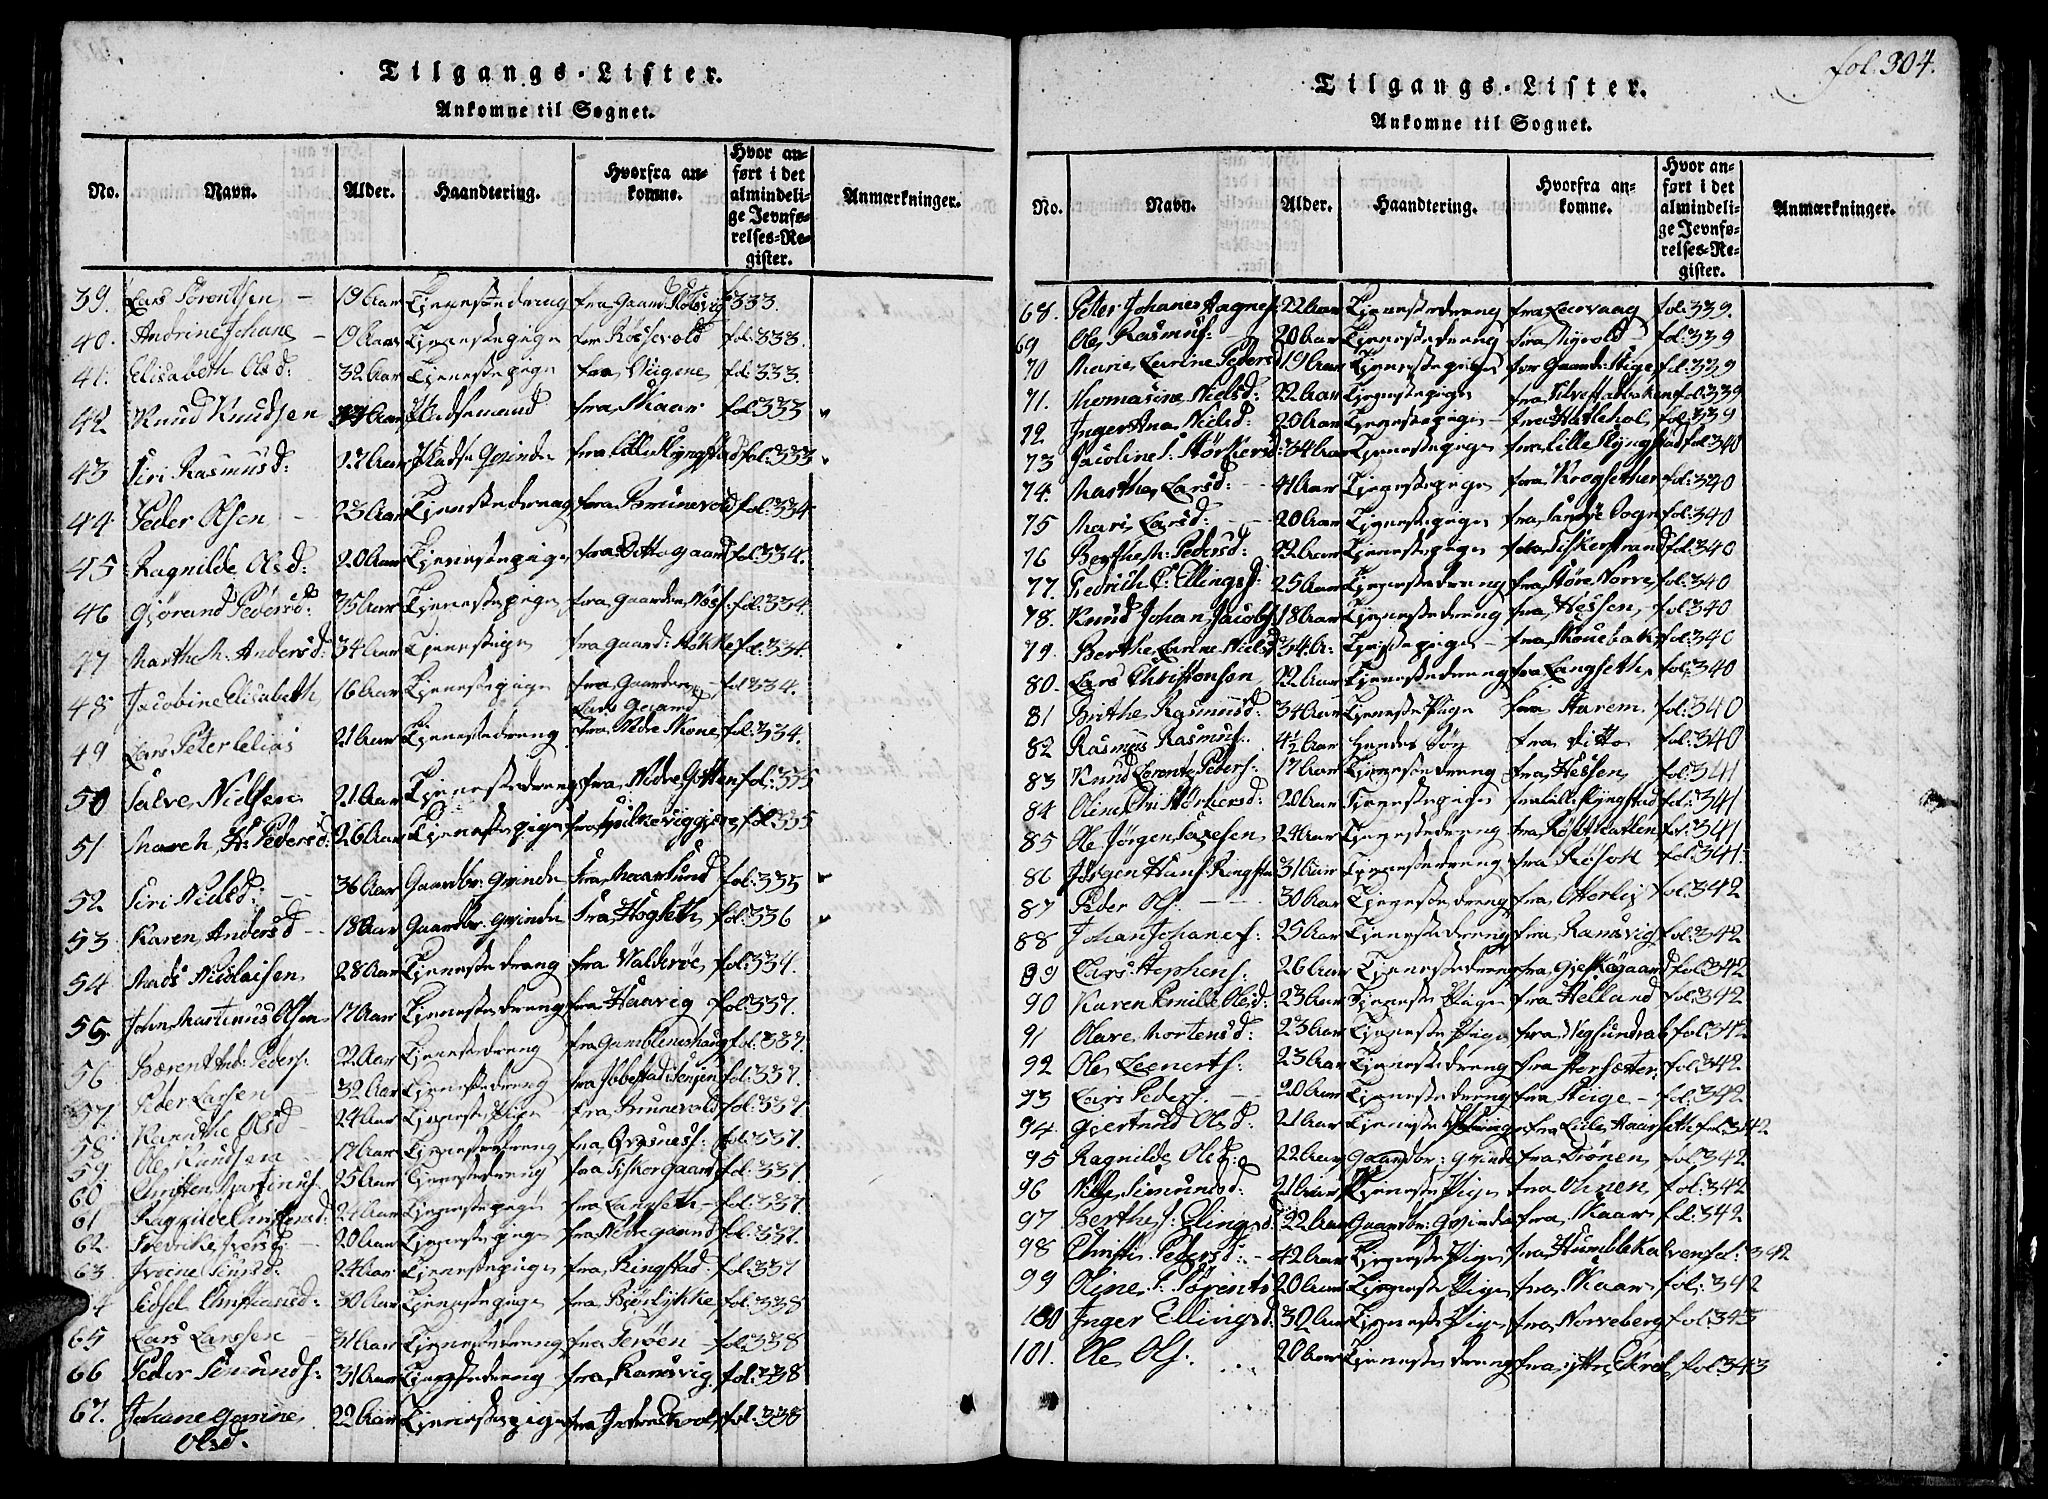 Tilgangs-Lister.
Ankomne til Sognet.
No. Navn. Alder. Haandtering. Hvorfra ankomne. Hvor anført i det almindelige Jevnførelses-Register. Anmærkninger.
39. Lars Sørentsen 19 Aar Tjenestedreng fra Gaard 333.
40. Andrine Johane 19 Aar Tjenestepige fol: 333.
41. Elisabeth Olsd: 32 Aar Tjenestepige fra fol: 333.
42 Knud Knudsen Aar Huusmand fra Skaar fol: 333
43 Siri Rasmusd: 27 Aar Qvinde fra Lille Slyngstad fol: 333
44 Peder Olsen 23 Aar Tjenestedreng fra Brunevold fol: 334
45 Ragnilde Olsd: 20 Aar Tjenestepige fra Ditto Gaard fol: 334.
46 Gjørand Pedersd: 35 Aar Tjenestepige fra Gaarden fol: 334.
47 Marthe M. Andersd: 34 Aar Tjenestepige fra Gaard: fol: 334.
48 Jacobine Elisabeth 16 Aar Tjenestepige fra Gaarden Lars Gaard fol 334.
49 Lars Peter Elias 21 Aar Tjenestedreng fra Nedre fol: 334.
50 Salve Nielsen 21 Aar Tjenestedreng fra Nedre fol: 335
51 Maren H: Pedersd: 26 Aar Tjenestepige fra fol: 335
52 Siri Nielsd: 36 Aar Gaardbr: Qvinde fra fol: 335
53 Karen Andersd 18 Aar Gaardbr. Qvinde fra Hogseth fol: 336
54 Mads Nicolaisen 28 Aar Tjenestedreng fra Walderøe fol: 337.
55 John Martinus Olsen 17 Aar Tjenestedreng fra Haavig fol: 337.
56 Bærent And: Peders: 22 Aar Tjenestedreng fra Gamblemshaug fol: 337.
57. Peder Larsen 32 Aar Tjenestedreng fra Senjen fol: 337.
58 Olsd 24 Aar Tjeneste Pige fra Brunevold fol: 337
59 Ole Knudsen 17 Aar Tjenestedreng fra fol: 337.
60 Christen Martinus 25 Aar Tjenestedreng fra Fiskergaard fol: 337
61 Ragnilde Christensd: 24 Aar Tjenestepige fra Langseth fol: 337.
62. Fredrike Iversd: 20 Aar Tjenestepige fra Nedregaard fol: 337.
63. 24 Aar Tjenestepige fra Ringstad fol: 337
Sidsel Christiansd: 30 Aar Tjenestepige fra Bjørlykke fol: 338
65 Lars Larssen 31 Aar Tjenestedreng fra fol: 338
66 Peder 31 Aar Tjenestedreng fra Ramsvig fol: 338
67. Johane 22 Aar Tjenestepige fra fol: 338
Olsd.
fol. 304.
Tilgangs-Lister.
Ankomne til Sognet.
No. Navn. Alder. Haandtering. Hvorfra ankomne. Hvor anført i det almindelige Jevnførelses-Register. Anmærkninger.
68. Peter Johanes 22 Aar Tjenestedreng fra Leervaag fol: 339.
69 Ole Rasmus: 20 Aar Tjenestedreng fra fol: 339
70 Marie Larine Pedersd 19 Aar Tjenestepige fra Gaard: fol: 339
71. Thomasine Nielsd: 22 Aar Tjenestepige fra fol: 339
72 Inger Ana Nielsd: 20 Aar Tjenestepige fra fol: 339
73 Jacoline S. Størkersd: 34 Aar Tjenestepige fra Lille Slyngstad fol: 340
74. Marthe Larsd: 41 Aar Tjenestepige fra Krogsether fol: 340
75 Mari Larsd: 20 Aar Tjenestepige fra Sogn fol: 340
76 Berthe M: Pedersd: 22 Aar Tjenestepige fra Fiskerstrand fol: 340
77. Fedrich C. Ellings: 25 Aar Tjenestedreng fra Støre Norve fol: 340
78. Knud Johan Jacobs 18 Aar Tjenestedreng fra Hessen fol: 340
79. Berthe Larine Nielsd 34 A: Tjenistepige fra fol: 340
80. Lars Christensen 22 Aar Tjenestedreng fra Langseth fol: 340
81 Brithe Rasmusd: 34 Aar Tjeneste Pige fra Harem fol: 340
82 Rasmus Rasmus: 4½ Aar Hendes Søn fra Ditto fol: 340
83 Knud Lorents Peders: 17 Aar Tjenestedreng fra Hessen fol: 341
84 Oline Størkersd: 20 Aar Tjenestepige fra Lille Slyngstad fol: 341
85 Ole Jørgen 24 Aar Tjenestedreng fra fol: 341
86 Jørgen Hans: Ringstad 31 Aar Tjenestedreng fra fol: 341.
87 Peder Ols: 30 Aar Tjenestedreng fra Otterlei fol: 342
88 Johan Johanes: 25 Aar Tjenestedreng fra Ramsvig fol: 342
89 Lars Stephens: 26 Aar Tjenestedreng fra fol: 342
90 Karen Emilie Olsd: 23 Aar Tjeneste Pige fra Helland fol: 342
91 Olave Mortensd: 23 Aar Tjeneste Pige fra Vegsund fol: 342
92 Ole Leenerts: 23 Aar Tjenestedreng fra fol: 342
93 Lars Peders: 20 Aar Tjenestedreng fra fol: 342
94. Gjertrud Olsd: 21 Aar Tjeneste Pige fra Lille fol: 342
95 Ragnilde Olsd: 22 Aar Gaardbr: Qvinde fra Drønen fol: 342
96 Simunsd: 21 Aar Tjeneste Pige fra fol: 342
97 Berthe Elingsd: 22 Aar Gaardbr: Qvinde fra Skaar fol: 342
98 Christi Pedersd: 42 Aar Tjeneste Pige fra Humblekalven fol: 342
99 Oline P. Sørents 20 Aar Tjeneste Pige fra Skaar fol: 342
100 Inger Ellingsd: 32 Aar Tjeneste Pige fra Norveberg fol: 343
101. Ole Ols: 20 Aar Tjenestedreng fra fol: 343